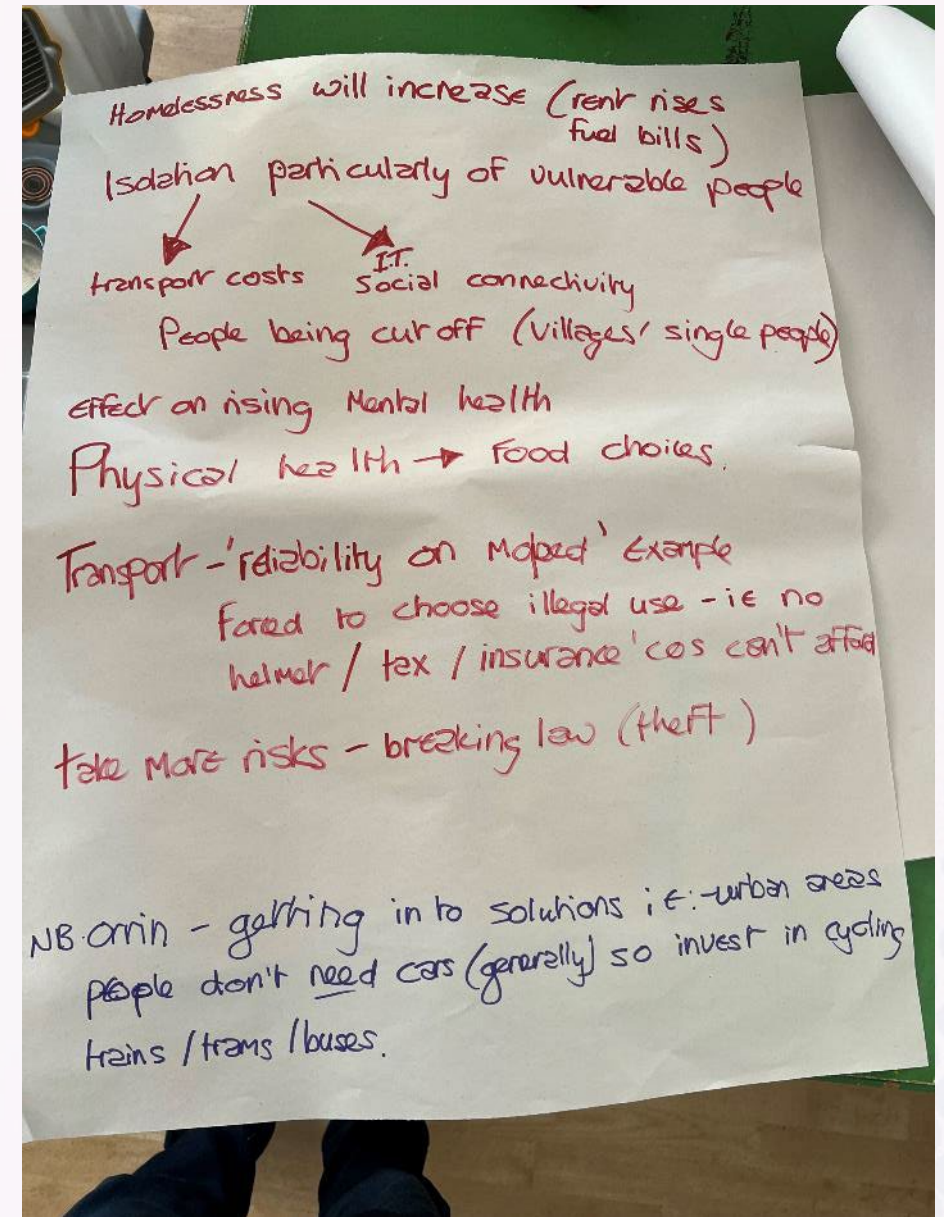 Homelessness will increase (rent rises
fuel bills)
Isolation particularly of vulnerable people
I.T.
transport costs social connectivity
People being cut off (villages/ single people)
Effect on rising Mental health
Physical health → Food choices.
Transport - 'reliability on Moped' Example
Forced to choose illegal use - ie no
helmet / tax / insurance 'cos can't afford
take More risks - breaking law (theft)
NB. Orrin - getting in to solutions ie:- urban areas
people don't need cars (generally) so invest in cycling
trains / trams / buses.